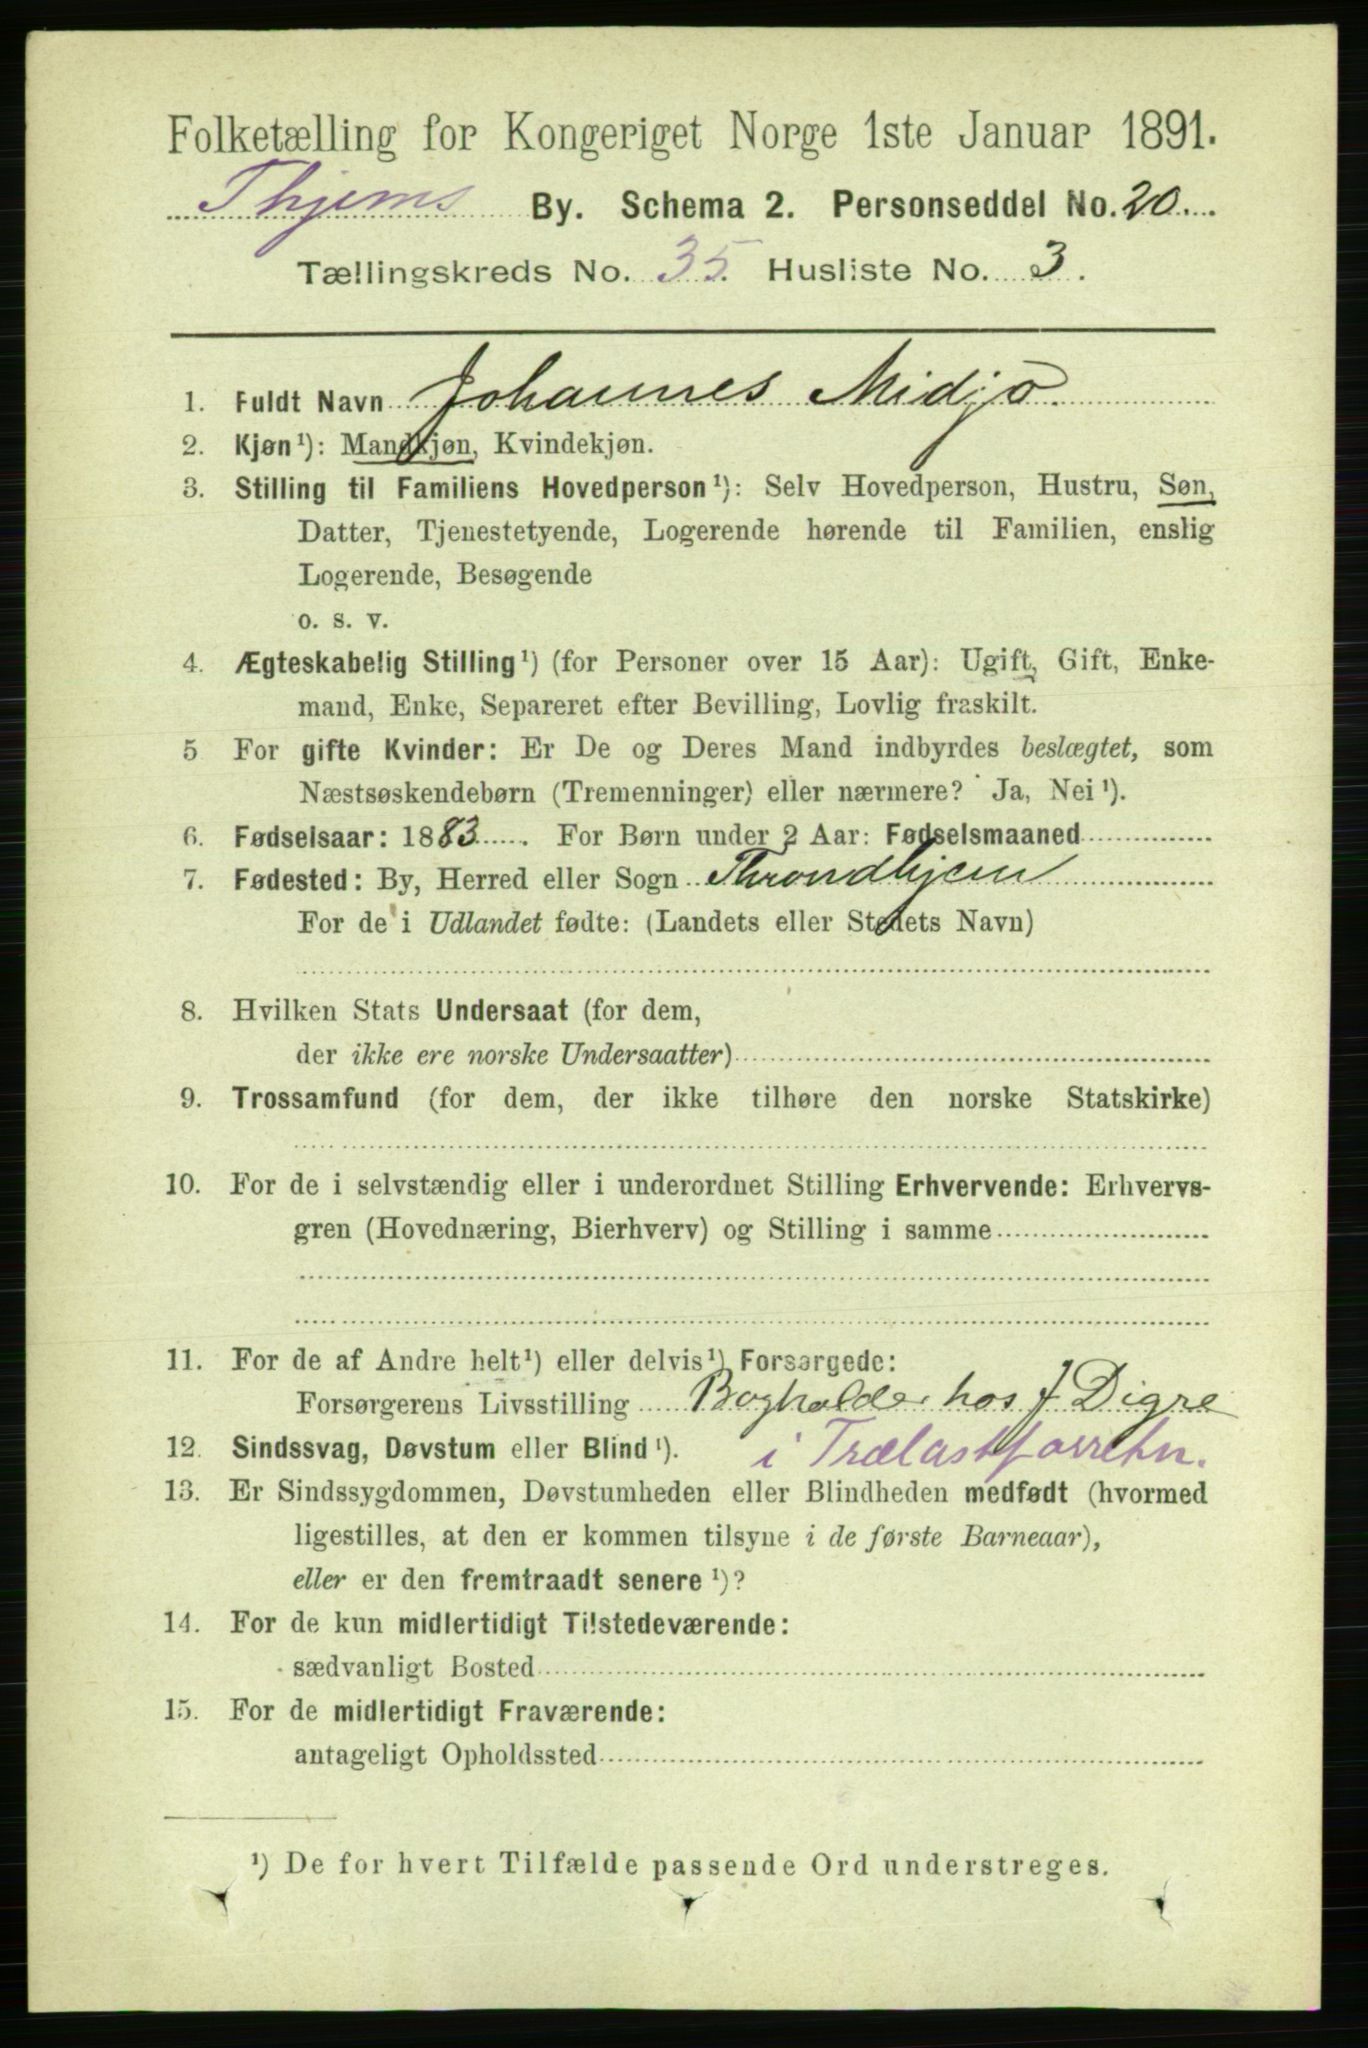 Folketælling for Kongeriget Norge 1ste Januar 1891.
Thjems By. Schema 2. Personseddel No. 20
Tællingskreds No. 35. Husliste No. 3.
1. Fuldt Navn Johannes Midjo.
2. Kjøn¹): Mandkjøn, Kvindekjøn.
3. Stilling til Familiens Hovedperson¹): Selv Hovedperson, Hustru, Søn,
Datter, Tjenestetyende, Logerende hørende til Familien, enslig
Logerende, Besøgende
o. s. v.
4. Ægteskabelig Stilling¹) (for Personer over 15 Aar): Ugift, Gift, Enke-
mand, Enke, Separeret efter Bevilling, Lovlig fraskilt.
5 For gifte Kvinder: Er De og Deres Mand indbyrdes beslægtet, som
Næstsøskendebørn (Tremenninger) eller nærmere? Ja, Nei¹).
6. Fødselsaar: 1883. For Børn under 2 Aar: Fødselsmaaned
7. Fødested: By, Herred eller Sogn Throndhjem
For de i Udlandet fødte: (Landets eller Stedets Navn)
8. Hvilken Stats Undersaat (for dem,
der ikke ere norske Undersaatter)
9. Trossamfund (for dem, der ikke tilhøre den norske Statskirke)
10. For de i selvstændig eller i underordnet Stilling Erhvervende: Erhvervs-
gren (Hovednæring, Bierhverv) og Stilling i samme
11. For de af Andre helt¹) eller delvis¹) Forsørgede:
Forsørgerens Livsstilling Bogholder hos J Digre
12. Sindssvag, Døvstum eller Blind¹). i Trælastforretn.
13. Er Sindssygdommen, Døvstumheden eller Blindheden medfødt (hvormed
ligestilles, at den er kommen tilsyne i de første Barneaar),
eller er den fremtraadt senere¹)?
14. For de kun midlertidigt Tilstedeværende:
sædvanligt Bosted
15. For de midlertidigt Fraværende:
antageligt Opholdssted
¹) De for hvert Tilfælde passende Ord understreges.